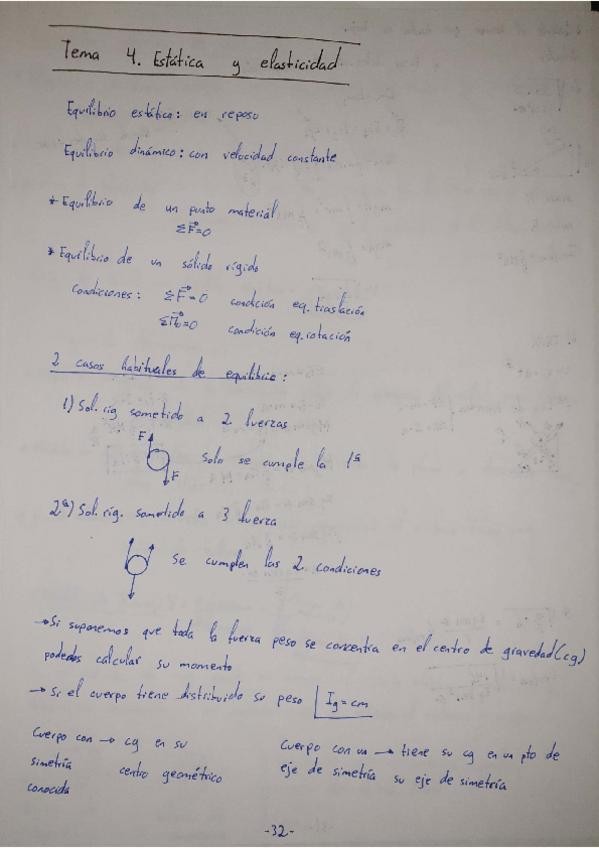 Tema 4. Estática y elasticidad
Equilibrio estático: en reposo
Equilibrio dinámico: con velocidad constante
* Equilibrio de un punto material
ΣF=0
* Equilibrio de un sólido rígido
Condiciones: ΣF=0 condición eq. traslación
ΣM0=0 condición eq. rotación
2 casos habituales de equilibrio:
1) Sol. rig sometido a 2 fuerzas
F
Solo se cumple la 1ª
F
2ª) Sol. rig. sometido a 3 fuerza
Se cumplen las 2 condiciones
→ Si suponemos que toda la fuerza peso se concentra en el centro de gravedad (cg)
podedos calcular su momento
→ Si el cuerpo tiene distribuido su peso Ig = cm
Cuerpo con → cg en su
simetría centro geométrico
conocida
Cuerpo con un → tiene su cg en un pto de
eje de simetría su eje de simetría
-32-